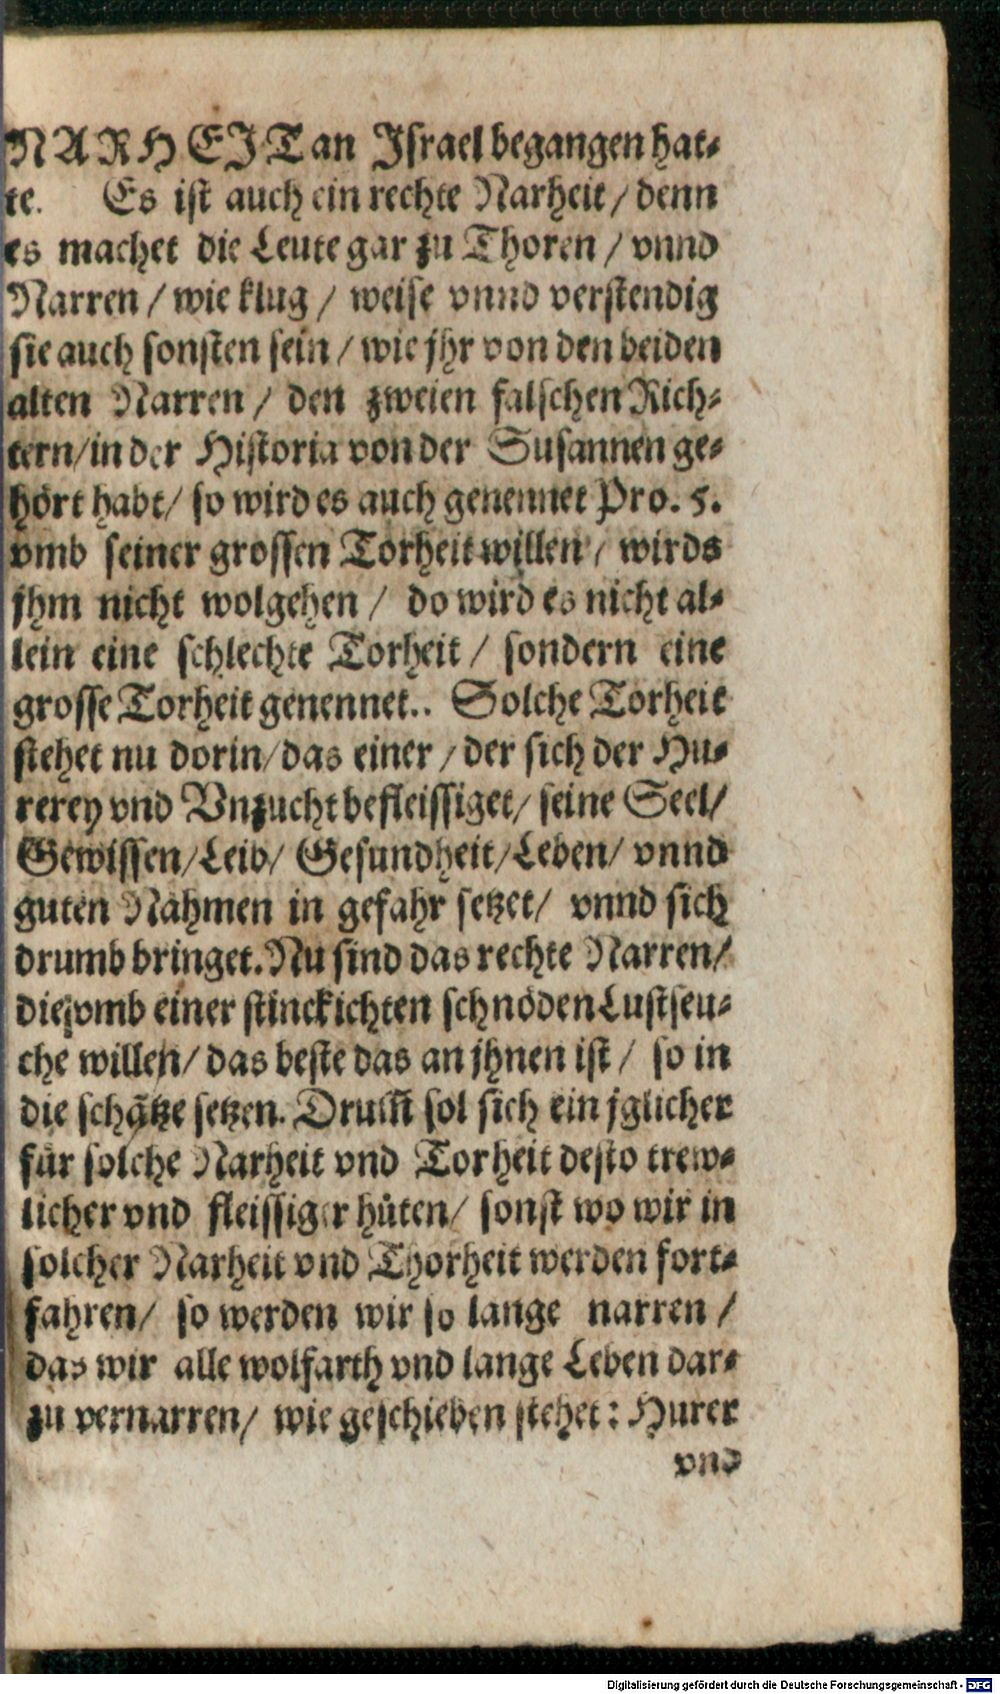 NARHEIT an Israel begangen hat-
te. Es ist auch ein rechte Narheit / denn
es machet die Leute gar zu Thoren / vnnd
Narren / wie klug / weise vnnd verstendig
sie auch sonsten sein / wie jhr von den beiden
alten Narren / den zweien falschen Rich-
tern / in der Historia von der Susannen ge-
hört habt / so wird es auch genennet Pro. 5.
vmb seiner grossen Torheit willen / wirds
jhm nicht wolgehen / do wird es nicht al-
lein eine schlechte Torheit / sondern eine
grosse Torheit genennet.. Solche Torheit
stehet nu dorin / das einer / der sich der Hu-
rerey vnd Vnzucht befleissiget / seine Seel /
Gewissen / Leib / Gesundheit / Leben / vnnd
guten Nahmen in gefahr setzet / vnnd sich
drumb bringet. Nu sind das rechte Narren /
die vmb einer stinckichten schnöden Lustseu-
che willen / das beste das an jhnen ist / so in
die schätze setzen. Drum̃ sol sich ein jglicher
für solche Narheit vnd Torheit desto trew-
licher vnd fleissiger hüten / sonst wo wir in
solcher Narheit vnd Thorheit werden fort-
fahren / so werden wir so lange narren /
das wir alle wolfarth vnd lange Leben dar-
zu vernarren / wie geschieben stehet: Hurer
vnd
Digitalisierung gefördert durch die Deutsche Forschungsgemeinschaft - DFG